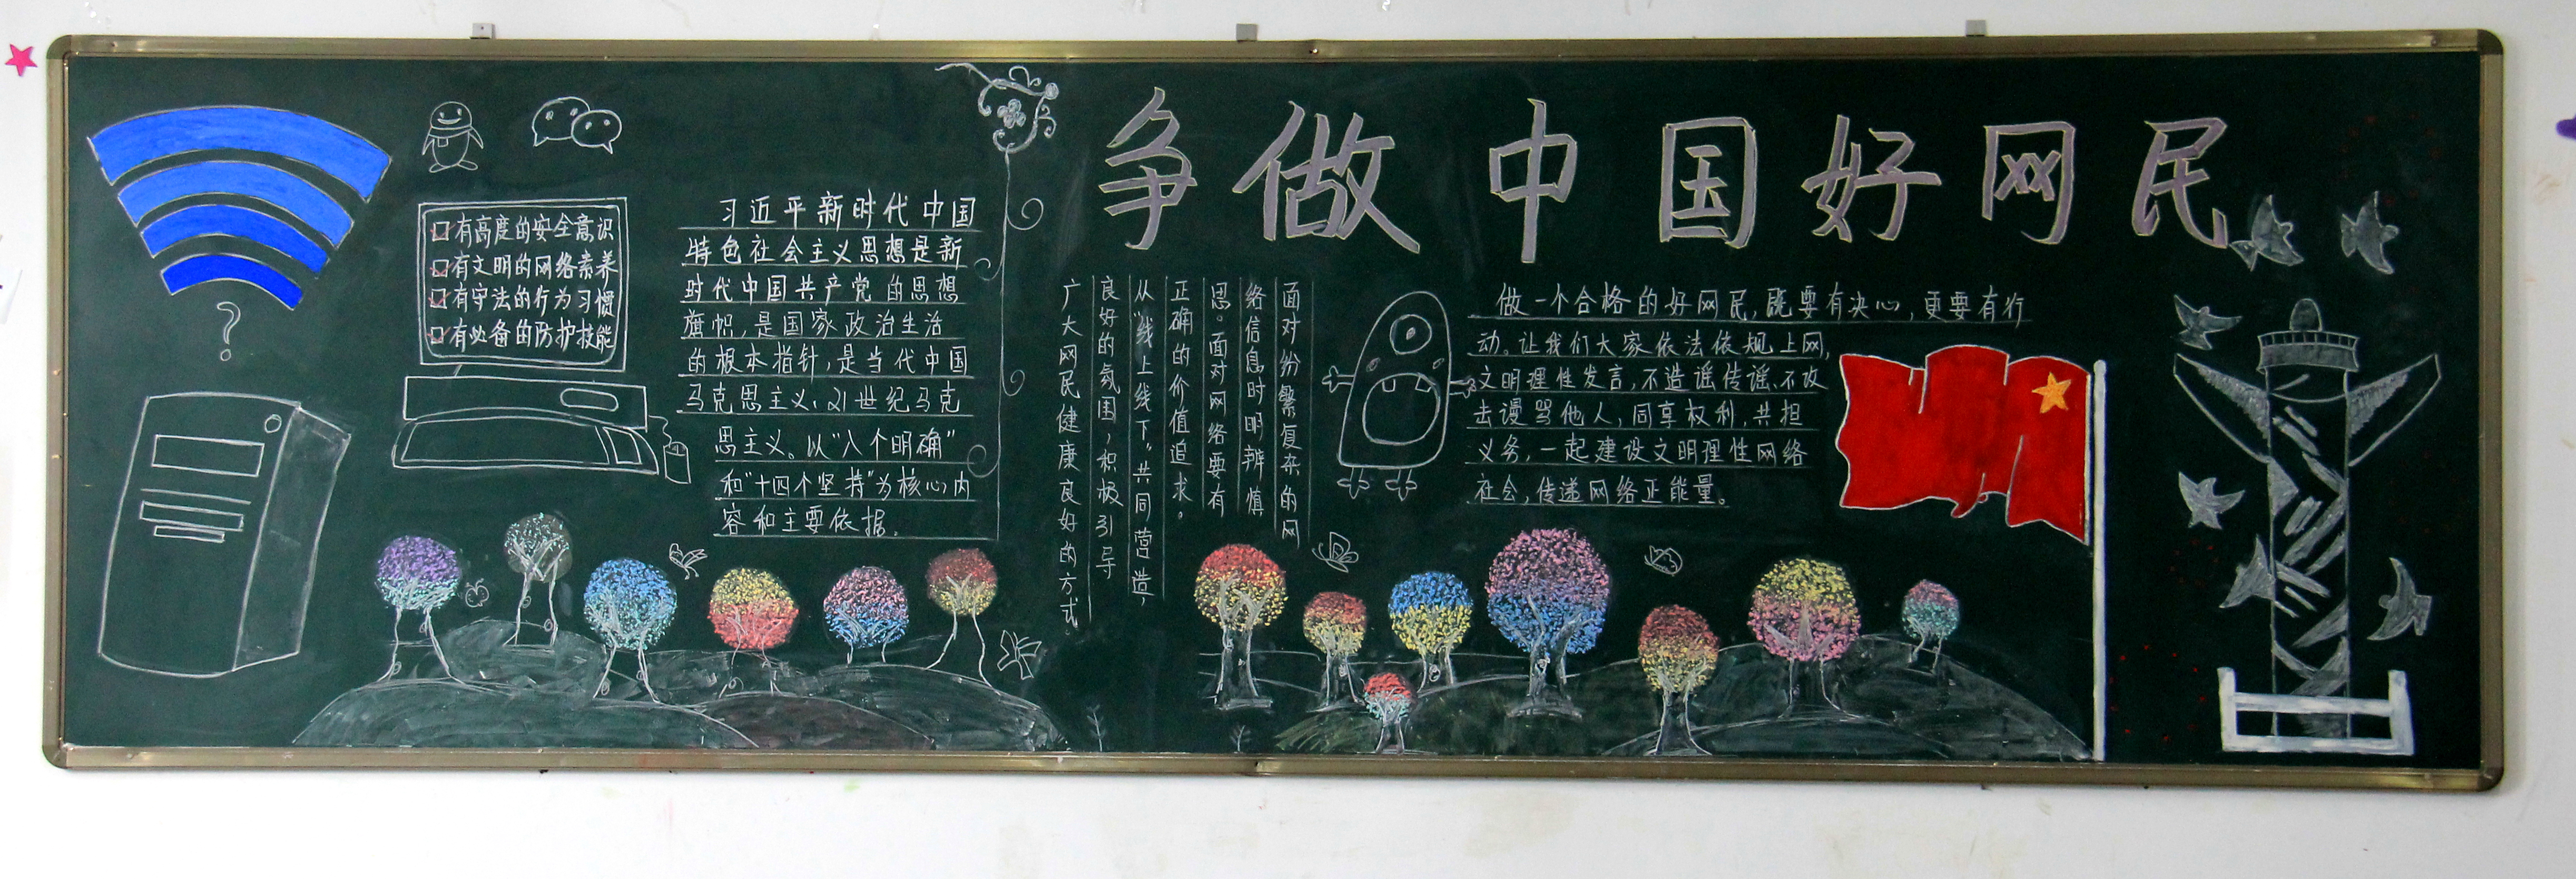 争做中国好网民
有高度的安全意识
有文明的网络素养
有守法的行为习惯
有必备的防护技能
?
习近平新时代中国
特色社会主义思想是新
时代中国共产党的思想
旗帜,是国家政治生活
的根本指针,是当代中国
马克思主义、21世纪马克
思主义。以"八个明确"
和"十四个坚持"为核心内
容和主要依据。
面对纷繁复杂的网
络信息时明辨慎
思。面对网络要有
正确的价值追求。
从"线上线下"共同营造,
良好的氛围,积极引导
广大网民健康良好的方式.
做一个合格的好网民,既要有决心,更要有行
动。让我们大家依法依规上网,
文明理性发言,不造谣传谣、不攻
击谩骂他人,同享权利,共担
义务,一起建设文明理性网络
社会,传递网络正能量。